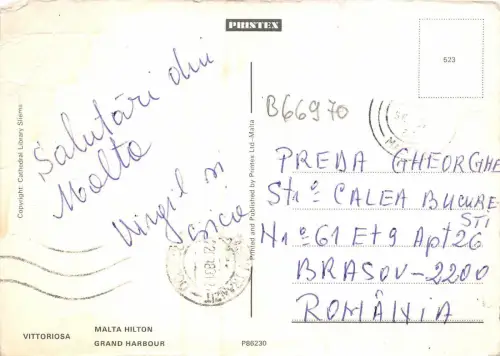 PRINTEX
523
Copyright: Cathedral Library Sliema
Salutări din
Malta
Virgil și
B66970
PREDA GHEORGHE
Str: CALEA BUCURE-
STI
Nr: 61 Et 9 Apt 26
BRASOV-2200
ROMÂNIA
Printed and Published by Printex Ltd-Malta
VITTORIOSA
MALTA HILTON
GRAND HARBOUR
P86230